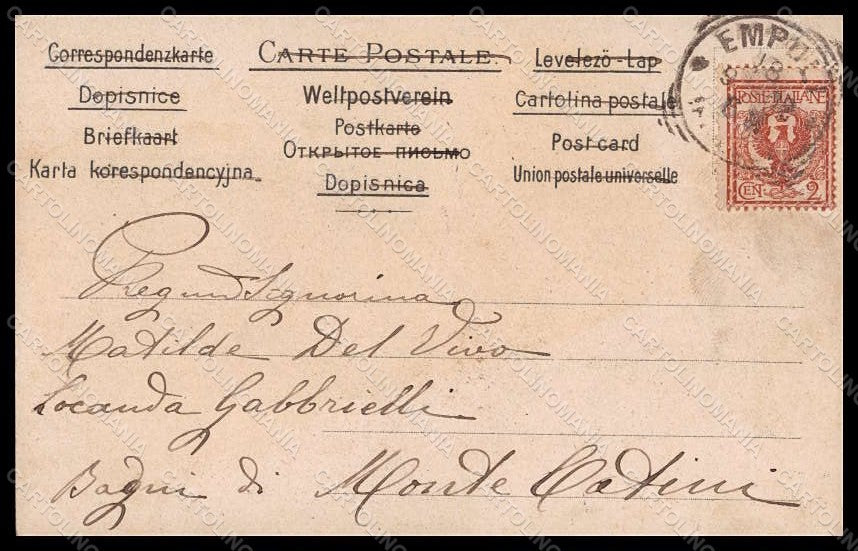 Correspondenzkarte
Dopisnice
Briefkaart
Karta korespondencyjna
CARTE POSTALE.
Weltpostverein
Postkarte
Открытое письмо
Dopisnica
Levelező-Lap
Cartolina postale
Post card
Union postale universelle
EMPOLI
18
POSTE ITALIANE
CEN 2
Signorina
Matilde Del Vivo
Locanda Gabbrielli
Bagni di Monte Catini
CARTOLINOMANIA